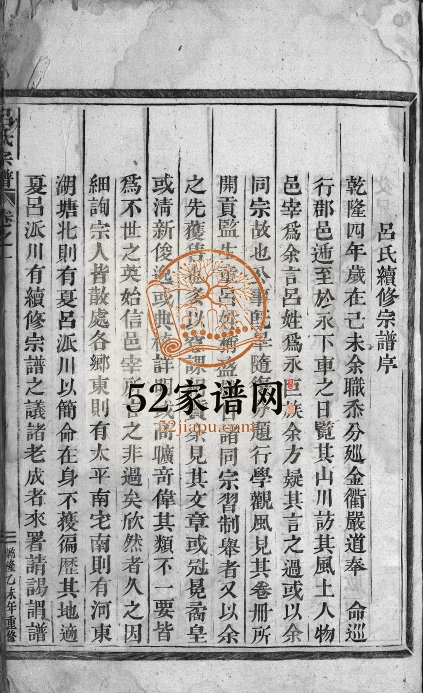 呂氏續修宗譜序
乾隆四年歲在己未余職忝分廵金衢嚴道奉 命巡
行郡邑遞至於永下車之日覽其山川訪其風土人物
邑宰爲余言呂姓爲永 族余方疑其言之過或以余
同宗故也公事 隨 題行學觀風見其卷冊所
開貢監生童呂姓 諸同宗習制舉者又以余
之先獲 見其文章或冠冕裔皇
或清新俊 或典 詳明或高曠奇偉其類不一要皆
爲不世之英始信邑宰 言之非過矣欣然者久之因
細詢宗人皆散處各鄉東則有太平南宅南則有河東
湖塘北則有夏呂派川以簡命在身不獲徧歷其地適
夏呂派川有續修宗譜之議諸老成者來署請謁謂譜
呂氏宗譜 卷之一
乾隆乙未年重修
52家谱网
52jiapu.com